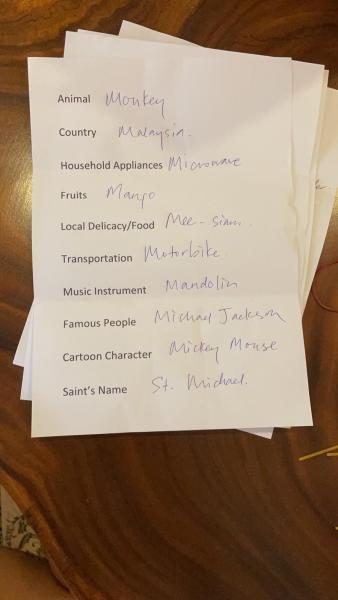 Animal Monkey
Country Malaysia.
Household Appliances Microwave
Fruits Mango
Local Delicacy/Food Mee-siam.
Transportation Motorbike.
Music Instrument Mandolin
Famous People Michael Jackson
Cartoon Character Mickey Mouse
Saint's Name St. Michael.